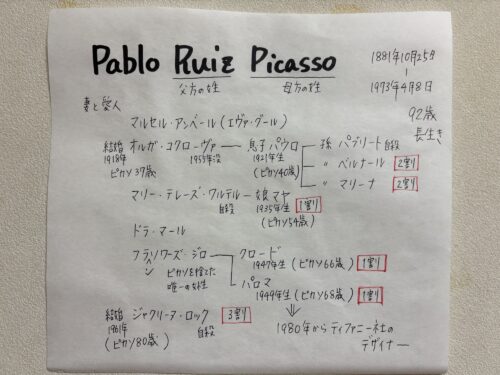 Pablo Ruiz Picasso
父方の姓 母方の姓
1881年10月25日
|
1973年4月8日
92歳
長生き
妻と愛人
マルセル・アンベール(エヴァ・グール)
結婚 オルガ・コクローヴァ 息子パウロ 孫 パブリート 自殺
1918年 1955年没 1921年生
ピカソ37歳 (ピカソ40歳) 〃 ベルナール 2割
〃 マリーナ 2割
マリー・テレーズ・ワルテル 娘マヤ
自殺 1935年生 1割
(ピカソ54歳)
ドラ・マール
フランソワーズ・ジロー クロード
ピカソを捨てた 1947年生(ピカソ66歳) 1割
唯一の女性 パロマ
1949年生(ピカソ68歳) 1割
結婚 ジャクリーヌ・ロック 3割
1961年 自殺
(ピカソ80歳)
1980年からティファニー社の
デザイナー